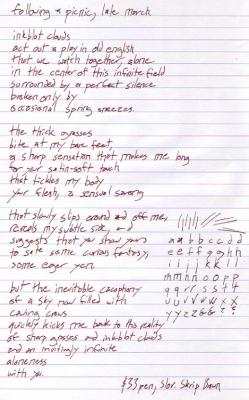 following a picnic, late march
inkblot clouds
act out a play in old english
that we watch together, alone
in the center of this infinite field
surrounded by a perfect silence
broken only by
occasional spring sneezes.
the thick grasses
bite at my bare feet,
a sharp sensation that makes me long
for your satin-soft touch
that tickles my body
your flesh, a sensual
that slowly slips around and off me,
reveals my subtle side, and
suggests that you show yours
to sate some curious fantasy,
some eager yen.
but the inevitable cacophony
of a sky now filled with
cawing crows
quickly kicks me back to this reality
of sharp grasses and inkblot clouds
and an invitingly infinite
aloneness
with you.
a a b b c c d d
e e f f g g h h
i i j j k k l l
m m n n o o p p
q q r r s s t t
u u v v w w x x
y y z z & & ? ?
$33 pen, Skrip Brown